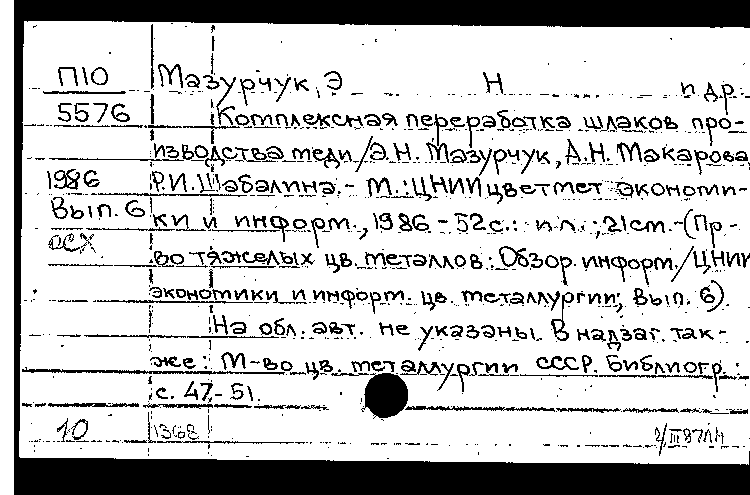 П10 Мазурчук, Э Н и др.
5576 Комплексная переработка шлаков про-
изводства меди/Э.Н. Мазурчук, А.Н. Макарова,
1986 Р.И. Шабалина.- М.:ЦНИИцветмет экономи-
Вып. 6 ки и информ., 1986 - 52с.: ил.; 21см.-(Пр-
ОСХ во тяжелых цв. металлов: Обзор. информ./ЦНИИ
экономики и информ. цв. металлургии; Вып. 6).
На обл. авт. не указаны. В надзаг. так-
же: М-во цв. металлургии СССР. Библиогр.:
с. 47-51.
10 1368